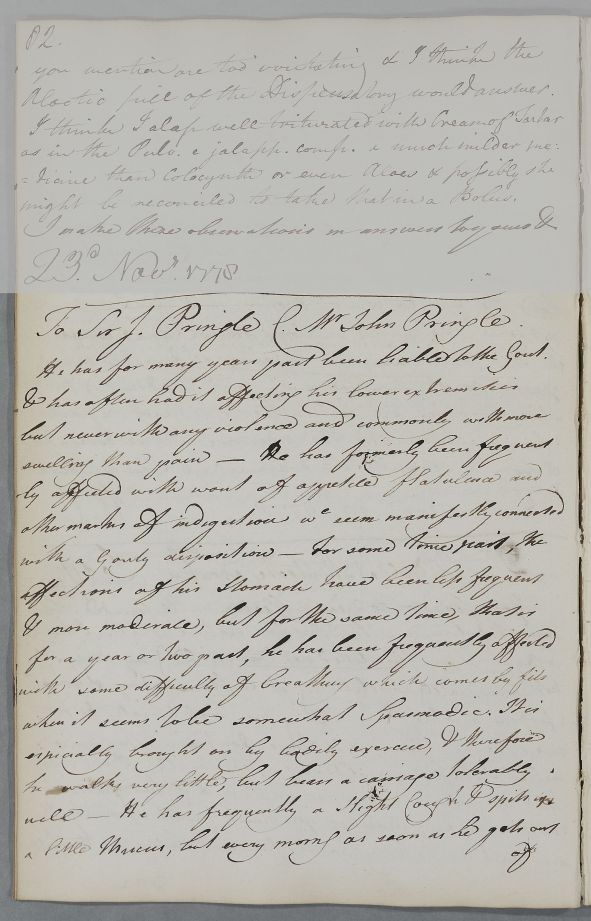 82.
you mention are too irritating & I think the
Aloetic pill of the Dispensatory would answer.
I think Jalap well triturated with Cream of Tartar
as in the Pulv. e jalapp. comp. a much milder me:
=dicine than Colocynth or even Aloes & possibly she
might be reconciled to take that in a Bolus.
I make these observations in answer to yours &
23.d Novr. 1778
To Sir J. Pringle C. Mr John Pringle.
He has for many years past been liable to the Gout.
& has often had it affecting his lower extremities
but never with any violence and commonly with more
swelling than pain — He has formerly been frequent
ly affected with want of appetite flatulence and
other marks of indigestion wc seem manifestly connected
with a Gouty disposition — for some time past, the
affections of his stomach have been less frequent
& more moderate, but for the same time, that is
for a year or two past, he has been frequently affected
with some difficulty of breathing which comes by fits
when it seems to be somewhat Spasmodic. It is
especially brought on by bodily exercise, & therefore
he walks very little, but bears a carriage tolerably
well — He has frequently a slight Cough & spits up
a little Mucus, but every morng as soon as he gets out
of